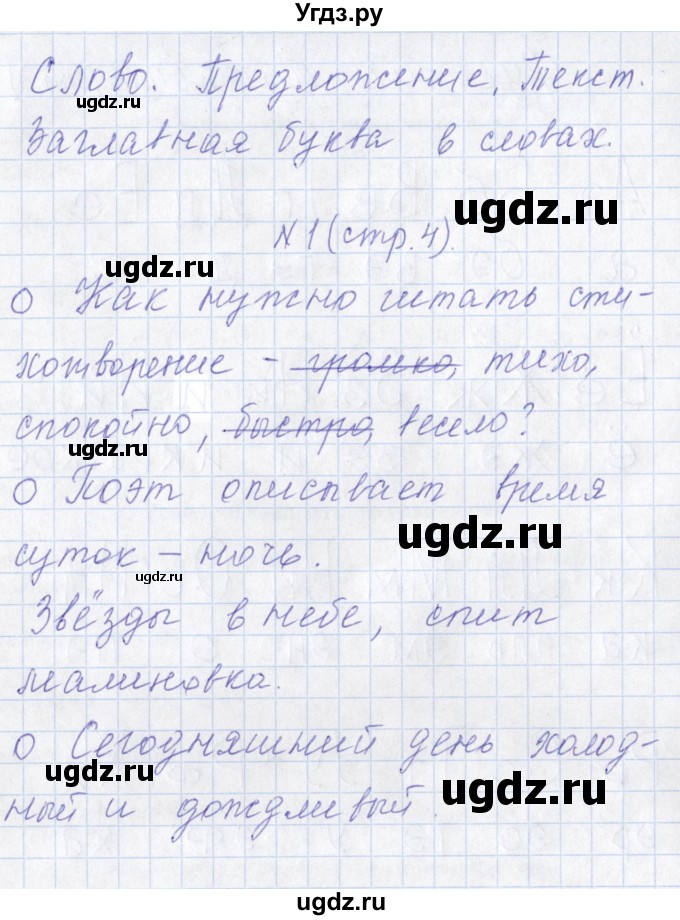 Угдз.ру
Слово. Предложение, Текст.
ugdz.ru
Заглавная буква в словах.
ugdz.ru
N 1 (стр. 4).
ugdz.ru
О Как нужно читать сти-
хотворение - громко, тихо,
ugdz.ru
ugdz.ru
спокойно, быстро, весело?
О Поэт описывает время
ugdz.ru
суток – ночь.
ugdz.ru
Звёзды в небе, спит
малиновка.
О Сегодняшний день холод-
ugdz.ru
ugdz.ru
ный и дождливый.
ugdz.ru